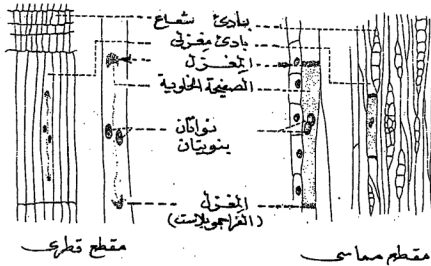 بادئ شعاع
بادئ مغزلي
المغزل
الصفيحة الخلوية
نواتان
بنويتان
المغزل
(الفراجموبلاست)
مقطع قطري
مقطع مماسي